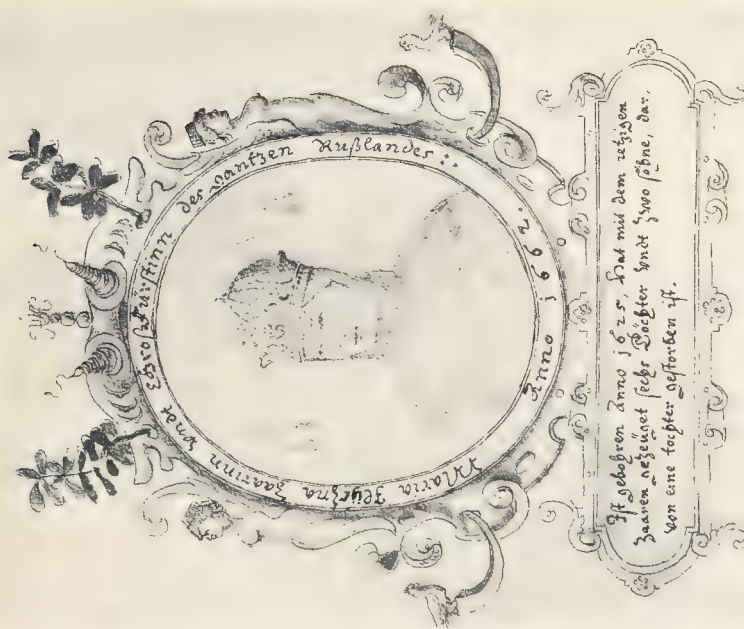 Maria Ilyczna Zaarinn vndt Großfürstinn des gantzen Rußlandes :.
Anno 1662.
Ist gebohren Anno 1625, hat mit dem ietzigen
Zaaren gezeuget sechs Döchter vndt zwo söhne, dar.
von eine tochter gestorben ist.